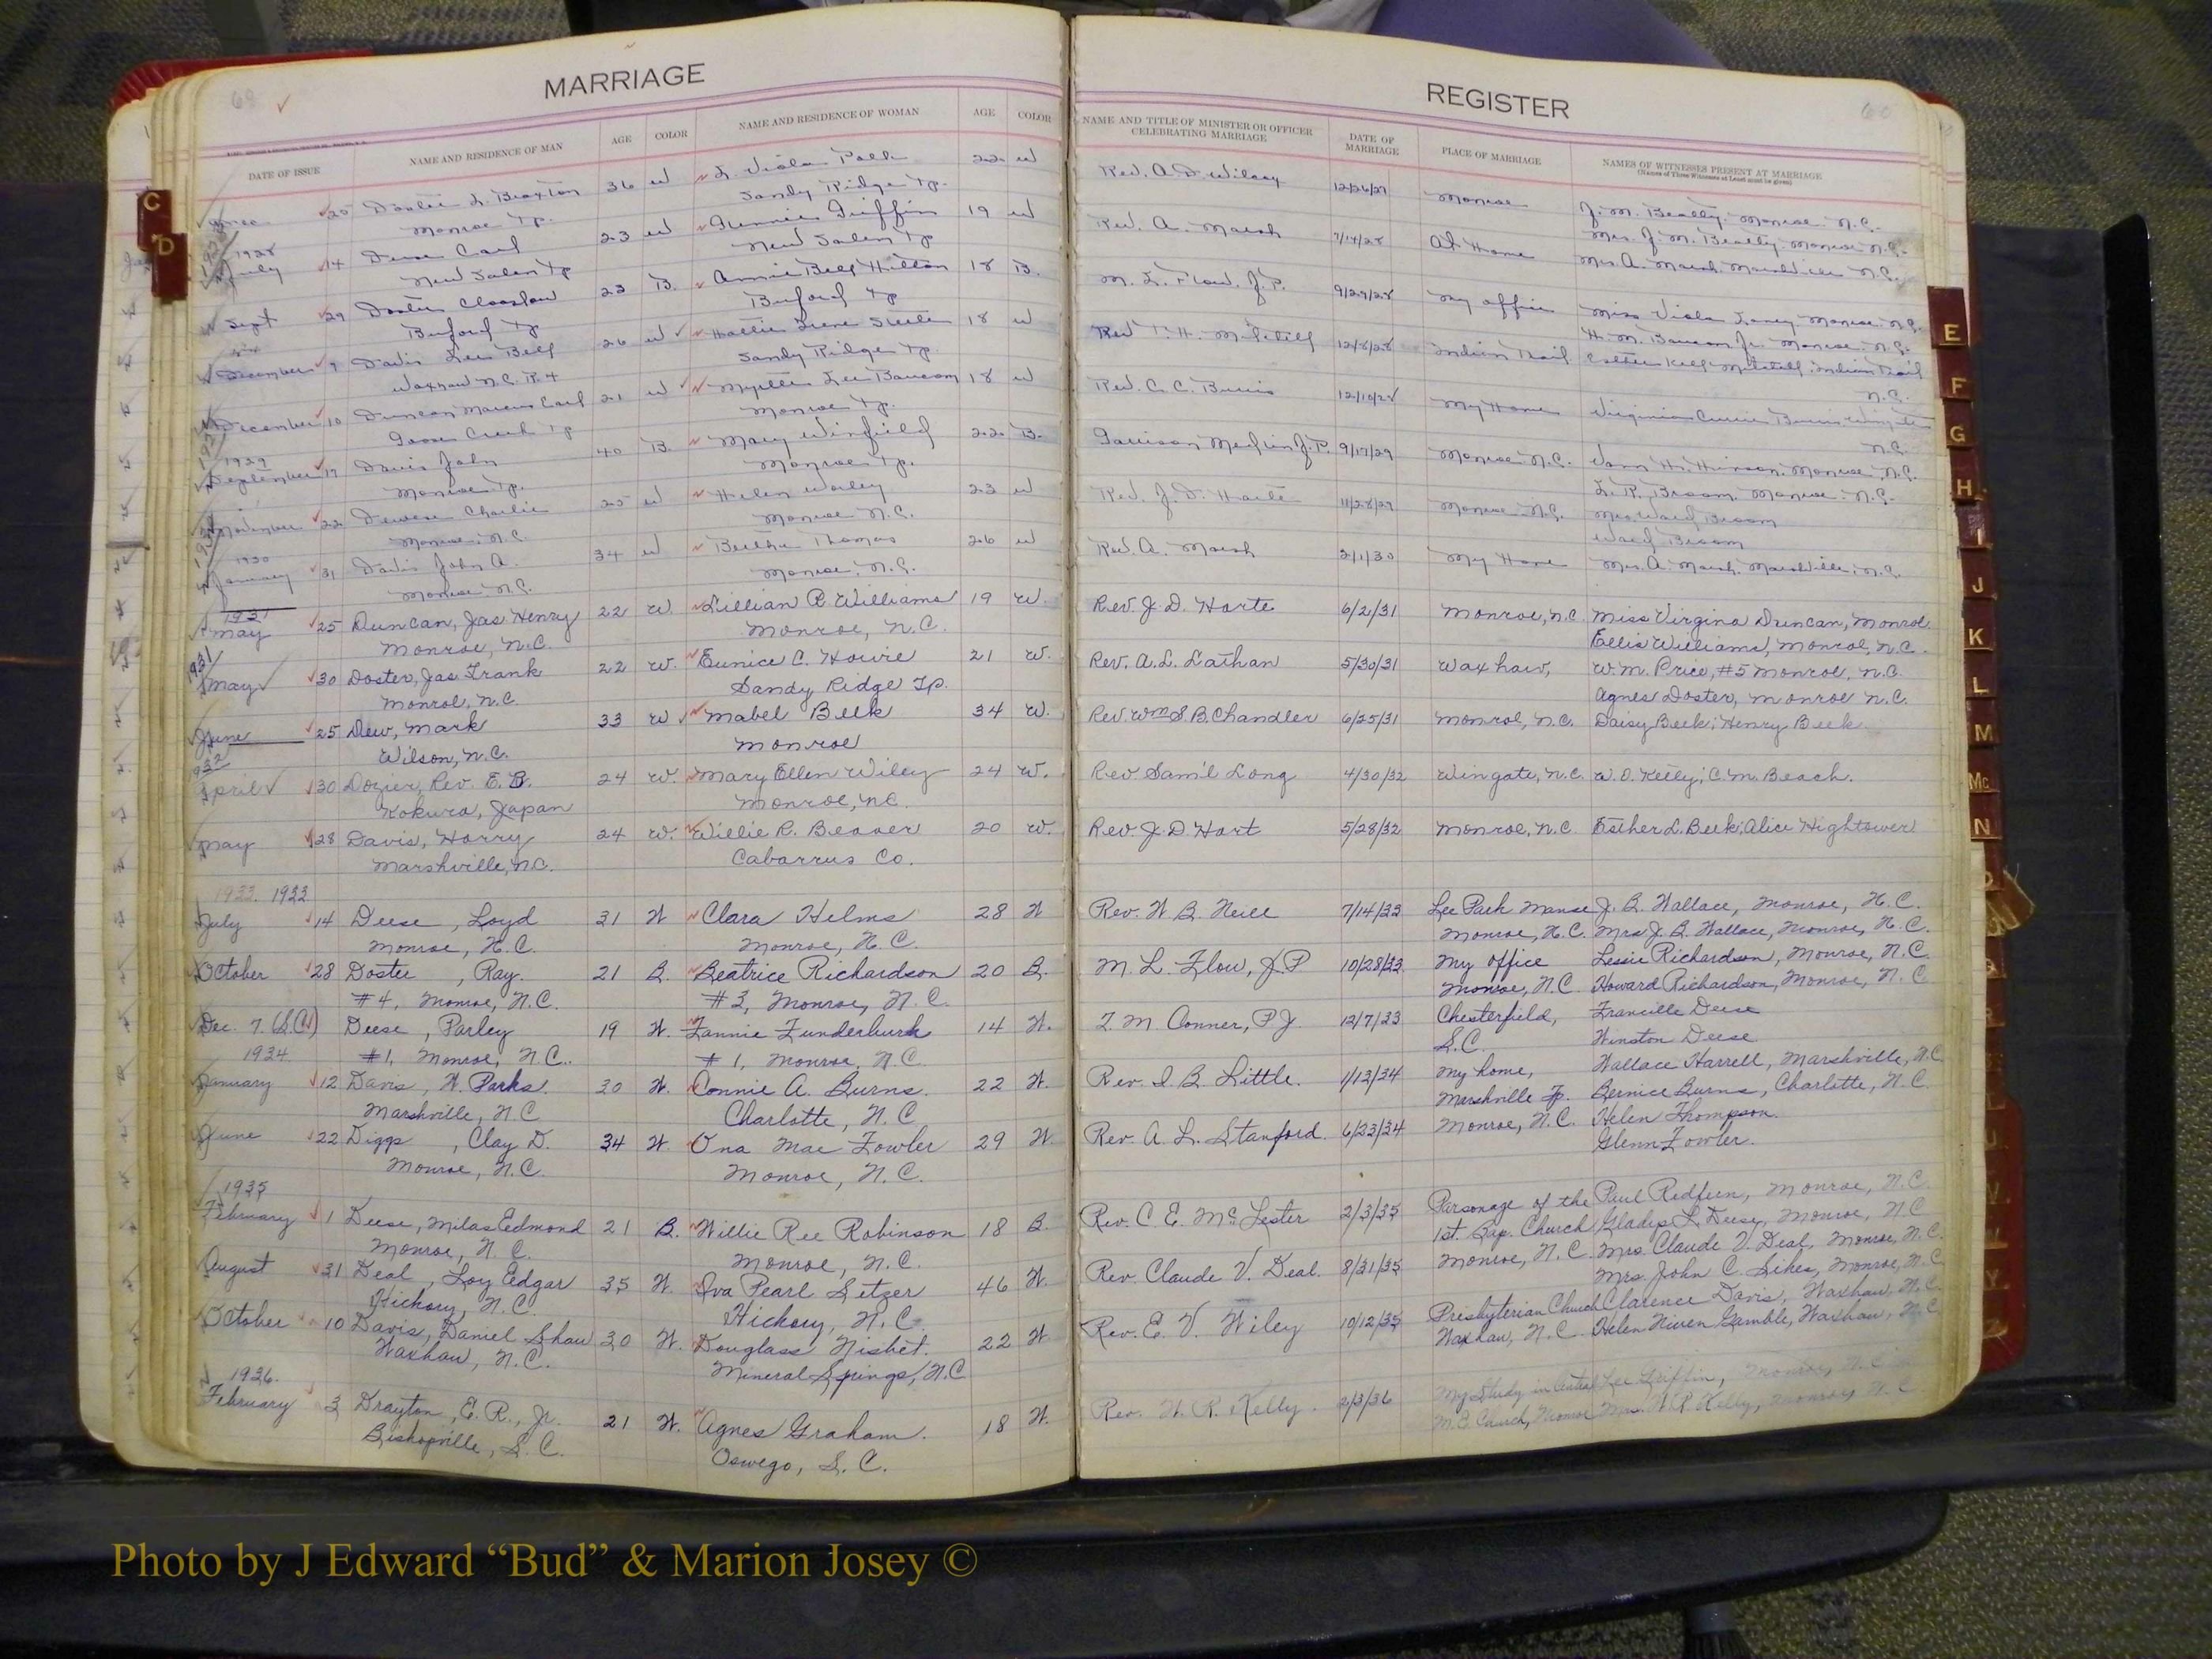 MARRIAGE
REGISTER
DATE OF ISSUE
NAME AND RESIDENCE OF MAN
AGE
COLOR
NAME AND RESIDENCE OF WOMAN
AGE
COLOR
NAME AND TITLE OF MINISTER OR OFFICER
CELEBRATING MARRIAGE
DATE OF
MARRIAGE
PLACE OF MARRIAGE
NAMES OF WITNESSES PRESENT AT MARRIAGE
(Names of Three Witnesses at Least must be given)
Braxton 36 W L. Viola Polk 22 W Rev. A. D. Wilcey 12/26/27 Monroe
Monroe Tp. Sandy Ridge Tp. J. M. Beatty. Monroe. N.C.
1928
July 14 Deese Carl 23 W Griffin 19 W Rev. A. Marsh 7/14/28 At Home Mrs. J. M. Beatty. Monroe N.C.
New Salem Tp New Salem Tp Mrs. A. Marsh. Marshville N.C.
Sept 29 Doster 23 B. Annie Bell 18 B. M. L. Flow. J.P. 9/29/28 My office
Buford Tp Buford Tp Miss Viola Laney Monroe. N.C.
December 9 Davis Lee Bell 26 W Hattie Irene Steele 18 W Rev 12/8/28 Indian Trail
Waxhaw N.C. R. 4 Sandy Ridge Tp.
December 10 Duncan Marcus Carl 21 W Myrtle Lee Baucom 18 W Rev. C. C. Burris 12/10/28 My Home
Goose Creek Tp Monroe Tp.
1929
September 17 Davis John 40 B. Mary Winfield 22 B. 9/17/29 Monroe N.C. Monroe, N.C.
Monroe Tp. Monroe Tp. L. R. Broom. Monroe. N.C.
November 22 Charlie 25 W Helen 23 W Rev. J. D. Harte 11/28/29 Monroe N.C. Mrs. Ward Broom
Monroe, N.C. Monroe N.C. Ward Broom
1930
January 31 Davis John A. 34 W Thomas 26 W Rev. A. Marsh 2/1/30 My Home Mrs. A. Marsh. Marshville, N.C.
Monroe N.C. Monroe. N.C.
1931
May 25 Duncan, Jas. Henry 22 W. Lillian R. Williams 19 W. Rev. J. D. Harte 6/2/31 Monroe, N.C. Miss Virgina Duncan, Monroe.
Monroe, N.C. Monroe, N.C. Ellis Williams, Monroe, N.C.
1931
May 30 Doster, Jas. Frank 22 W. Eunice C. Howie 21 W. Rev. A. L. Lathan 5/30/31 Waxhaw, W. M. Price, #5 Monroe, N.C.
Monroe, N.C. Sandy Ridge Tp. Agnes Doster, Monroe N.C.
June 25 Dew, Mark 33 W Mabel Belk 34 W. Rev Wm S. B. Chandler 6/25/31 Monroe, N.C. Daisy Belk; Henry Belk
Wilson, N.C. Monroe
932
April 30 Dozier, Rev. E. B. 24 W. Mary Ellen Wiley 24 W. Rev Sam'l Long 4/30/32 Wingate, N.C. W. O. Kelly; C. M. Beach.
Kokura, Japan Monroe, N.C.
May 28 Davis, Harry 24 W. Willie R. Beaver 20 W. Rev J. D Hart 5/28/32 Monroe, N.C. Esther L. Belk; Alice Hightower
Marshville, N.C. Cabarrus Co.
1933. 1933
July 14 Deese, Loyd 31 W Clara Helms 28 W Rev. W. B. Neill 7/14/33 Lee Park Manse J. B. Wallace, Monroe, N.C.
Monroe, N.C. Monroe, N.C. Monroe, N.C. Mrs J. B. Wallace, Monroe, N.C.
October 28 Doster, Ray. 21 B. Beatrice Richardson 20 B. M. L. Flow, J.P 10/28/33 My office Lessie Richardson, Monroe, N.C.
#4, Monroe, N.C. #3, Monroe, N.C. Monroe, N.C Howard Richardson, Monroe, N.C
Dec. 7. (S.C.) Deese, Parley 19 W. Fannie Funderburk 14 W. T. M Conner, P J. 12/7/33 Chesterfield, Franville Deese
#1, Monroe, N.C. #1, Monroe, N.C S.C. Winston Deese
1934
January 12 Davis, W. Parks. 30 W. Connie A. Burns. 22 W. Rev. I. B. Little. 1/13/34 My home, Wallace Harrell, Marshville, N.C
Marshville, N.C Charlotte, N.C Marshville Tp. Bernice Burns, Charlotte, N.C.
June 22 Diggs, Clay D. 34 W. Ona Mae Fowler 29 W. Rev. A. L. Stanford. 6/23/34 Monroe, N.C. Helen Thompson.
Monroe, N.C. Monroe, N.C. Glenn Fowler.
1935
February 1 Deese, Milas Edmond 21 B. Willie Ree Robinson 18 B. Rev. C. E. McLester 2/3/35 Parsonage of the Paul Redfern, Monroe, N.C.
Monroe, N.C. Monroe, N.C. 1st. Bap. Church Gladys L. Deese, Monroe, N.C
August 31 Deal, Loy Edgar 35 W. Iva Pearl Setzer 46 W. Rev. Claude V. Deal. 8/31/35 Monroe, N.C. Mrs. Claude V. Deal, Monroe, N.C.
Hickory, N.C. Hickory, N.C. Mrs. John C. Sikes, Monroe, N.C
October 10 Davis, Daniel Shaw 30 W. Douglass Nisbet. 22 W Rev. E. V. Wiley 10/12/35 Presbyterian Church Clarence Davis, Waxhaw, N.C.
Waxhaw, N.C. Mineral Springs, N.C Waxhaw, N.C. Helen Niven Gamble, Waxhaw, N.C
1936.
February 3 Drayton, E. R., Jr. 21 W. Agnes Graham. 18 W. Rev. W. R. Kelly. 2/3/36 My Study in Central Lee Griffin, Monroe, N.C
Bishopville, S.C. Oswego, S.C. M.E. Church, Monroe Mrs. W. R. Kelly, Monroe, N.C
C
D
E
F
G
H
I
J
K
L
M
Mc
N
Photo by J Edward “Bud” & Marion Josey ©